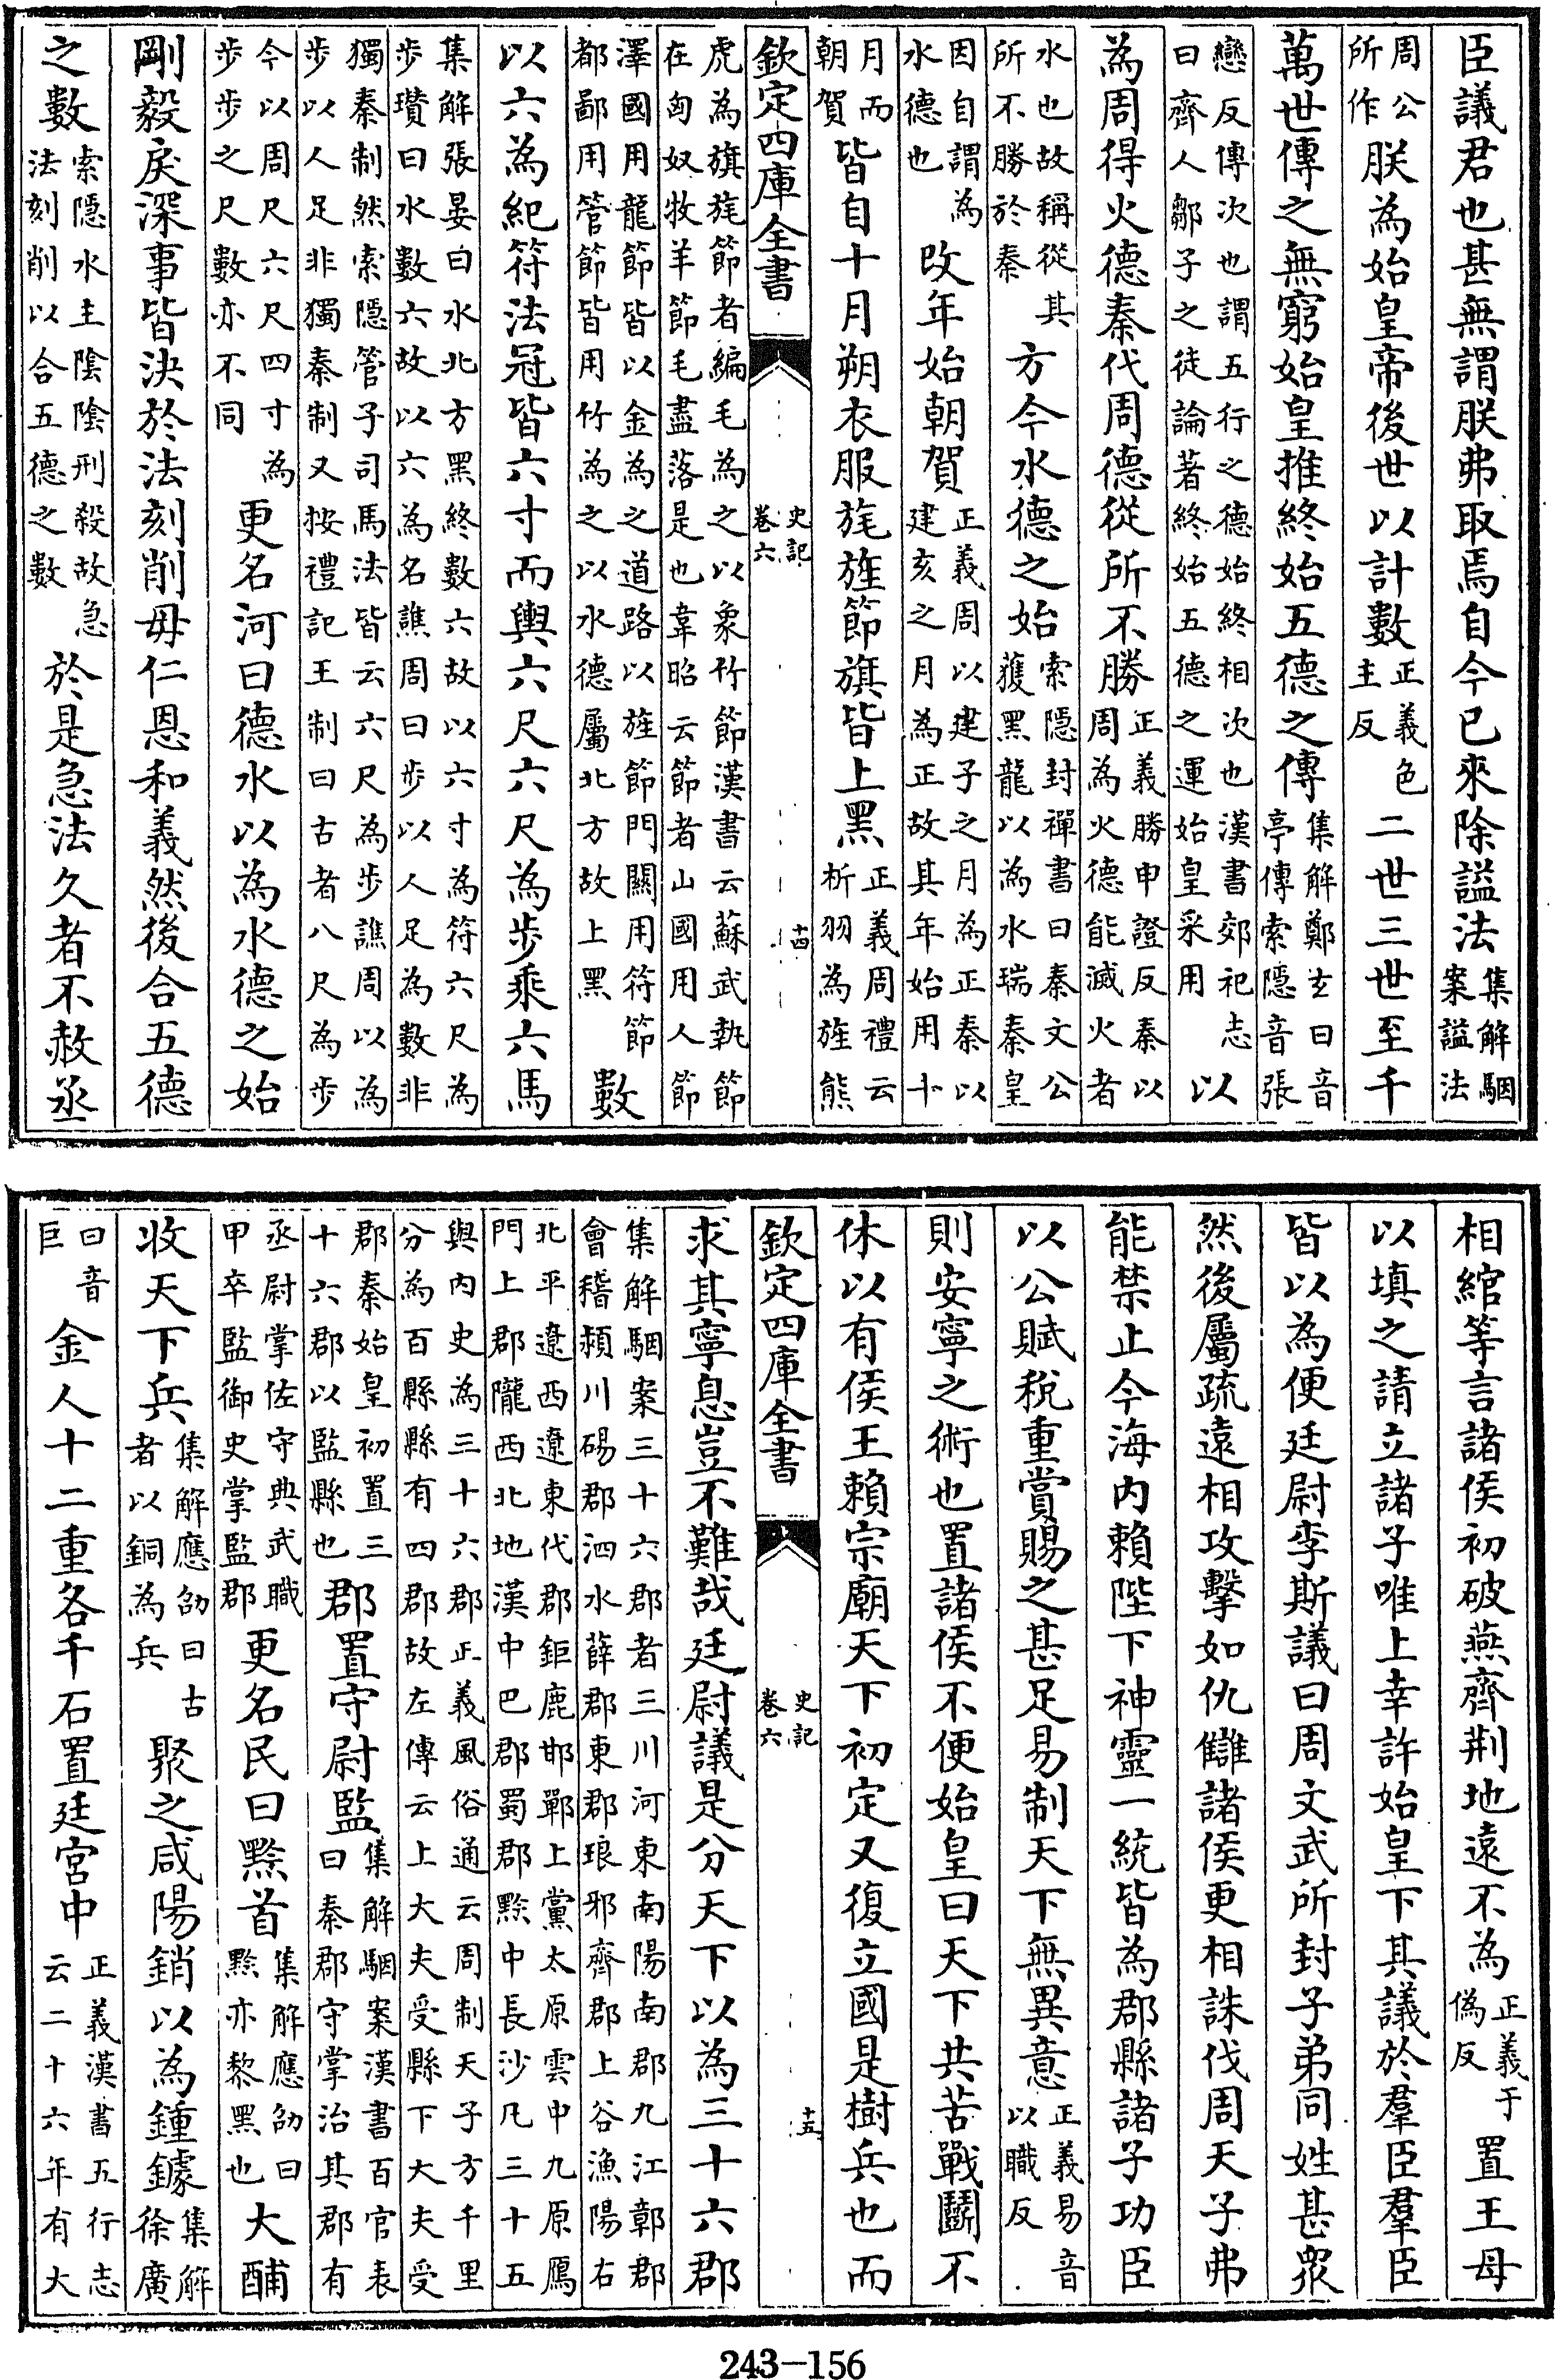 臣議君也甚無謂朕弗取焉自今已來除謚法集解駰案謚法
周公所作朕為始皇帝後世以計數正義色主反二世三世至千
萬世傳之無窮始皇推終始五德之傳集解鄭玄曰音亭傳索隱音張
戀反傳次也謂五行之德始終相次也漢書郊祀志曰齊人鄒子之徒論著終始五德之運始皇采用以
為周得火德秦代周德從所不勝正義勝申證反秦以周為火德能滅火者
水也故稱從其所不勝於秦方今水德之始索隱封禪書曰秦文公獲黑龍以為水瑞秦皇
因自謂為水德也改年始朝賀正義周以建子之月為正秦以建亥之月為正故其年始用十
月而朝賀皆自十月朔衣服旄旌節旗皆上黑正義周禮云析羽為旌熊
欽定四庫全書 史記卷六 十四
虎為旗旄節者編毛為之以象竹節漢書云蘇武執節在匈奴牧羊節毛盡落是也韋昭云節者山國用人節
澤國用龍節皆以金為之道路以旌節門關用符節都鄙用管節皆用竹為之以水德屬北方故上黑數
以六為紀符法冠皆六寸而輿六尺六尺為步乘六馬
集解張晏曰水北方黑終數六故以六寸為符六尺為步瓚曰水數六故以六為名譙周曰步以人足為數非
獨秦制然索隱管子司馬法皆云六尺為步譙周以為步以人足非獨秦制又按禮記王制曰古者八尺為步
今以周尺六尺四寸為步步之尺數亦不同更名河曰德水以為水德之始
剛毅戾深事皆決於法刻削毋仁恩和義然後合五德
之數索隱水主陰陰刑殺故急法刻削以合五德之數於是急法久者不赦丞
相綰等言諸侯初破燕齊荆地遠不為正義于偽反置王毋
以填之請立諸子唯上幸許始皇下其議於羣臣羣臣
皆以為便廷尉李斯議曰周文武所封子弟同姓甚眾
然後屬疏遠相攻擊如仇讎諸侯更相誅伐周天子弗
能禁止今海內賴陛下神靈一統皆為郡縣諸子功臣
以公賦稅重賞賜之甚足易制天下無異意正義易音以職反
則安寧之術也置諸侯不便始皇曰天下共苦戰鬭不
休以有侯王賴宗廟天下初定又復立國是樹兵也而
欽定四庫全書 史記卷六 十五
求其寧息豈不難哉廷尉議是分天下以為三十六郡
集解駰案三十六郡者三川河東南陽南郡九江鄣郡會稽潁川碭郡泗水薛郡東郡琅邪齊郡上谷漁陽右
北平遼西遼東代郡鉅鹿邯鄲上黨太原雲中九原鴈門上郡隴西北地漢中巴郡蜀郡黔中長沙凡三十五
與內史為三十六郡正義風俗通云周制天子方千里分為百縣縣有四郡故左傳云上大夫受縣下大夫受
郡秦始皇初置三十六郡以監縣也郡置守尉監集解駰案漢書百官表曰秦郡守掌治其郡有
丞尉掌佐守典武職甲卒監御史掌監郡更名民曰黔首集解應劭曰黔亦黎黑也大酺
收天下兵集解應劭曰古者以銅為兵聚之咸陽銷以為鍾鐻集解徐廣
曰音巨金人十二重各千石置廷宮中正義漢書五行志云二十六年有大
243-156